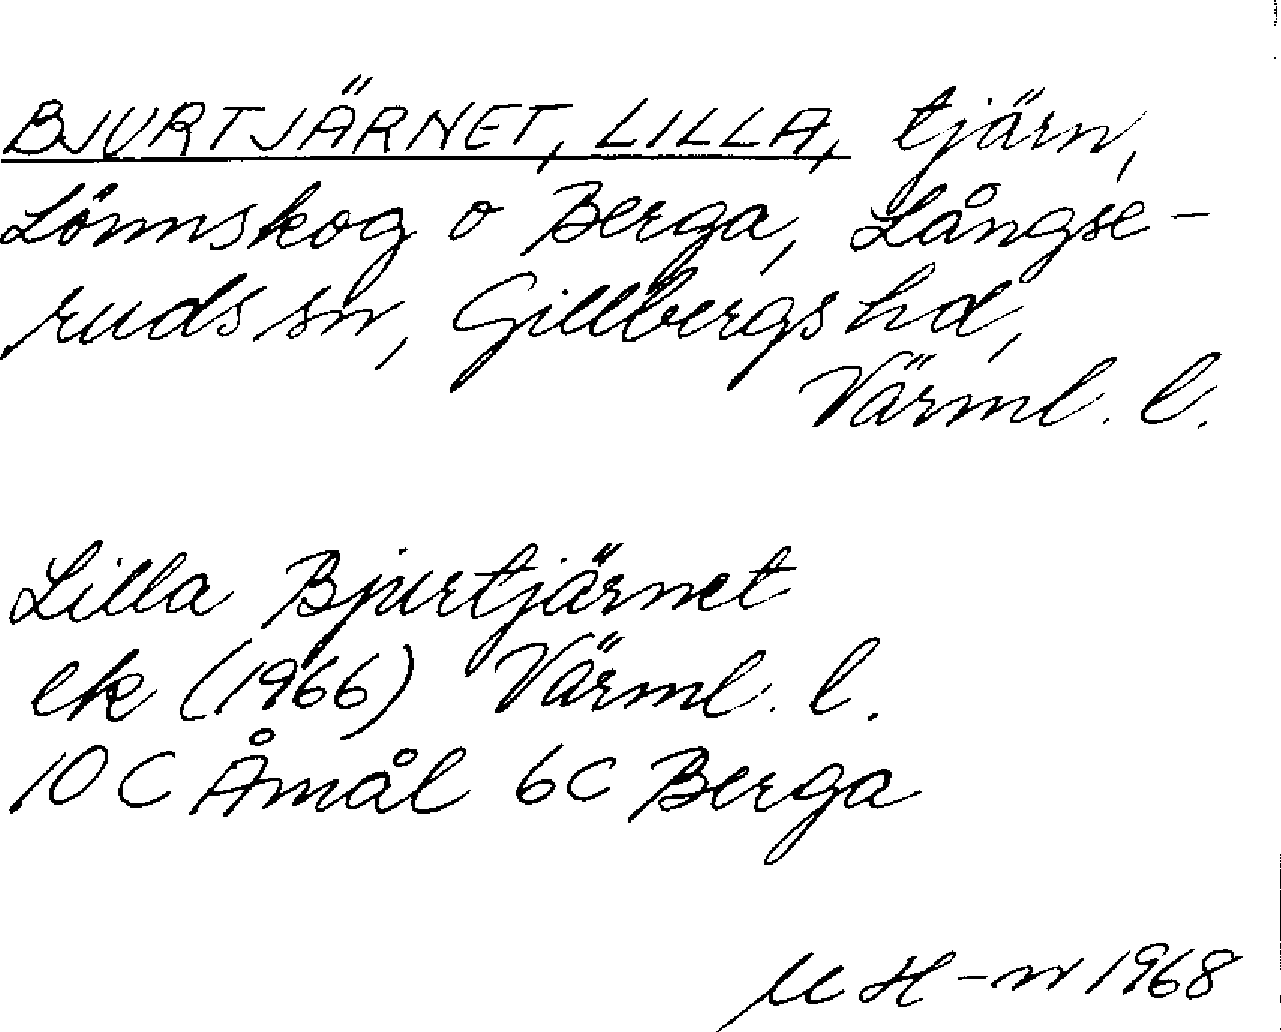 BJURTJÄRNET, LILLA, tjärn,
Lönnskog o Berga, Långse-
ruds sn, Gillbergs hd,
Värml. l.
Lilla Bjurtjärnet
ek (1966) Värml. l.
10 C Åmål 6c Berga
M H-n 1968